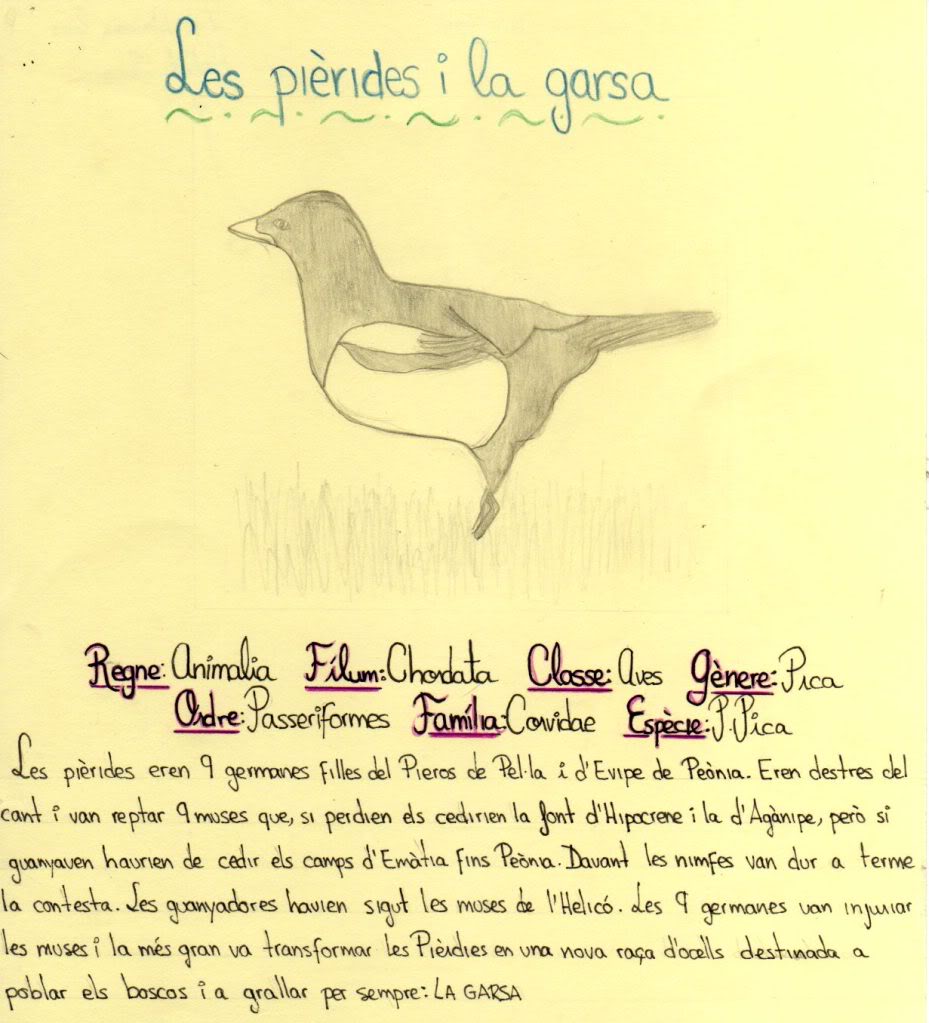 Les pièrides i la garsa
Regne: Animalia Fílum: Chordata Classe: Aves Gènere: Pica
Ordre: Passeriformes Família: Corvidae Espècie: P. Pica
Les pièrides eren 9 germanes filles del Pieros de Pel·la i d'Evipe de Peònia. Eren destres del
cant i van reptar 9 muses que, si perdien els cedirien la font d'Hipocrene i la d'Agànipe, però si
guanyaven haurien de cedir els camps d'Emàtia fins Peònia. Davant les nimfes van dur a terme
la contesta. Les guanyadores havien sigut les muses de l'Helicó. Les 9 germanes van injuriar
les muses i la més gran va transformar les Pièrdies en una nova raça d'ocells destinada a
poblar els boscos i a grallar per sempre: LA GARSA